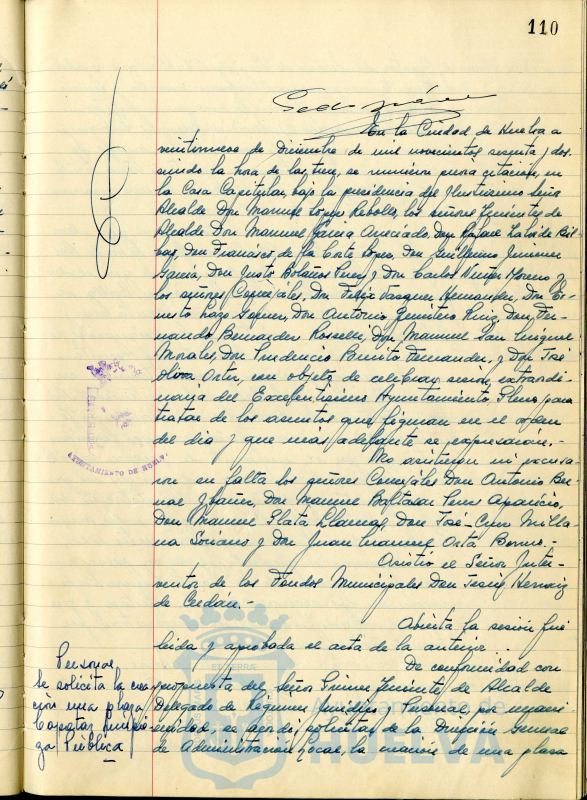 110
En la Ciudad de Huelva a
veintinueve de Diciembre de mil novecientos sesenta y dos
siendo la hora de las trece, se reunieron previa citación, en
la Casa Capitular, bajo la presidencia del Ilustrísimo Señor
Alcalde Don Manuel López Rebollo, los señores Tenientes de
Alcalde Don Manuel García Don Rafael de
Don Francisco de la Corte López, Don Guillermo Jimenez
García, Don Justo Bolaños Perez y Don Carlos Moreno y
los señores Concejales, Don Felix Vazquez Hernandez, Don Er-
nesto Don Antonio Quintero Ruiz, Don Fer-
nando Bermudez Don Manuel San Miguel
Morales, Don Prudencio Benito Fernandez, y Don José
Oliva Orta, con objeto de celebrar sesión extraordi-
naria del Excelentísimo Ayuntamiento Pleno, para
tratar de los asuntos que figuran en el orden
del dia y que más adelante se expresaran.-
No asistieron ni excusa-
ron su falta los señores Concejales Don Antonio
Don Manuel Baltasar Perez Aparicio,
Don Manuel Plata Llamas, Don José Milla-
na Soriano y Don Juan Manuel Orta
Asistió el Señor Inter-
ventor de los Fondos Municipales Don
de Cerdán.-
AYUNTAMIENTO DE HUELVA
Abierta la sesión fué
leida y aprobada el acta de la anterior.
De conformidad con
Personal
Se solicita la crea
ción una plaza
Capataz limpie
za Publica
propuesta del Señor Primer Teniente de Alcalde
Delegado de Regimen Jurídico y Personal, por unani-
midad, se acordó solicitar de la Dirección General
de Administracion Local, la creación de una plaza
HUELVA